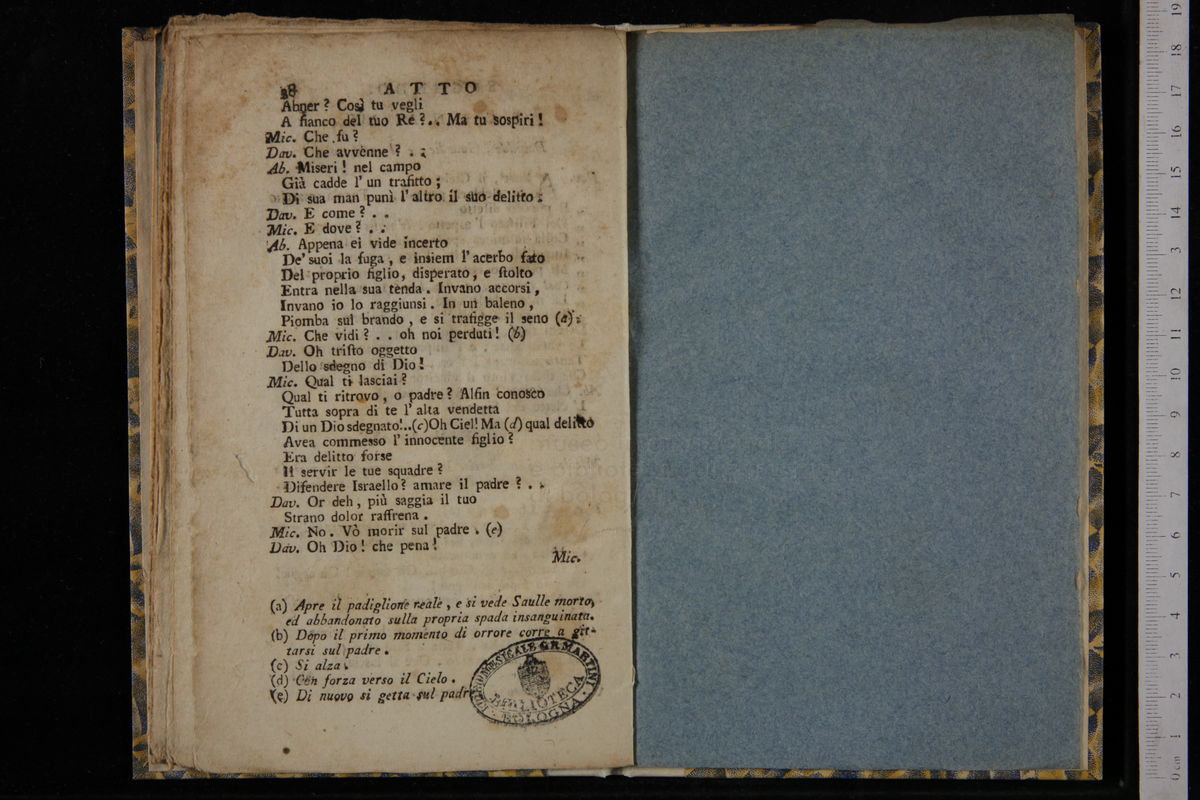 28 ATTO
Abner? Così tu vegli
A fianco del tuo Re?.. Ma tu sospiri!
Mic. Che fu?
Dav. Che avvenne? . .
Ab. Miseri! nel campo
Già cadde l'un trafitto;
Di sua man punì l'altro il suo delitto.
Dav. E come? . .
Mic. E dove? . .
Ab. Appena ei vide incerto
De' suoi la fuga, e insiem l'acerbo fato
Del proprio figlio, disperato, e ſtolto
Entra nella sua tenda. Invano accorsi,
Invano io lo raggiunsi. In un baleno,
Piomba sul brando, e si trafigge il seno (a).
Mic. Che vidi? . . oh noi perduti! (b)
Dav. Oh triſto oggetto
Dello sdegno di Dio!
Mic. Qual ti lasciai?
Qual ti ritrovo, o padre? Alfin conosco
Tutta sopra di te l'alta vendetta
Di un Dio sdegnato!..(c) Oh Ciel! Ma (d) qual delitto
Avea commesso l'innocente figlio?
Era delitto forse
Il servir le tue squadre?
Difendere Israello? amare il padre? . .
Dav. Or deh, più saggia il tuo
Strano dolor raffrena.
Mic. No. Vò morir sul padre. (e)
Dav. Oh Dio! che pena!
Mic.
(a) Apre il padiglione reale, e si vede Saulle morto,
ed abbandonato sulla propria spada insanguinata.
(b) Dopo il primo momento di orrore corre a git-
tarsi sul padre.
(c) Si alza.
(d) Con forza verso il Cielo.
(e) Di nuovo si getta sul padr
MUSICALE G.B. MARTINI
BIBLIOTECA
BOLOGNA
0 cm 1 2 3 4 5 6 7 8 9 10 11 12 13 14 15 16 17 18 19